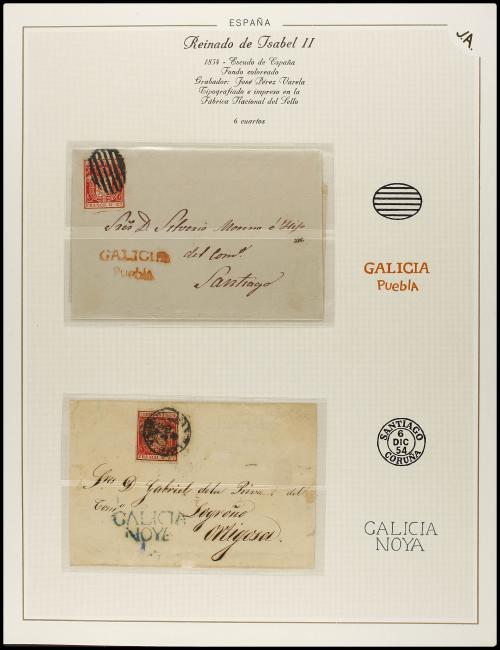 ESPAÑA
JA.
Reinado de Isabel II
1854 - Escudo de España
Fondo coloreado
Grabador: José Pérez Varela
Tipografiado e impreso en la
Fábrica Nacional del Sello
6 cuartos
Sres D. Silverio Moreno é Hijo
del Como.
Santiago
GALICIA
Puebla
GALICIA
PuebLA
Sres D. Gabriel de la Riva del
Como
Logroño
Ortigosa.
GALICIA
NOYA
SANTIAGO
6
DIC
54
CORUÑA
GALICIA
NOYA